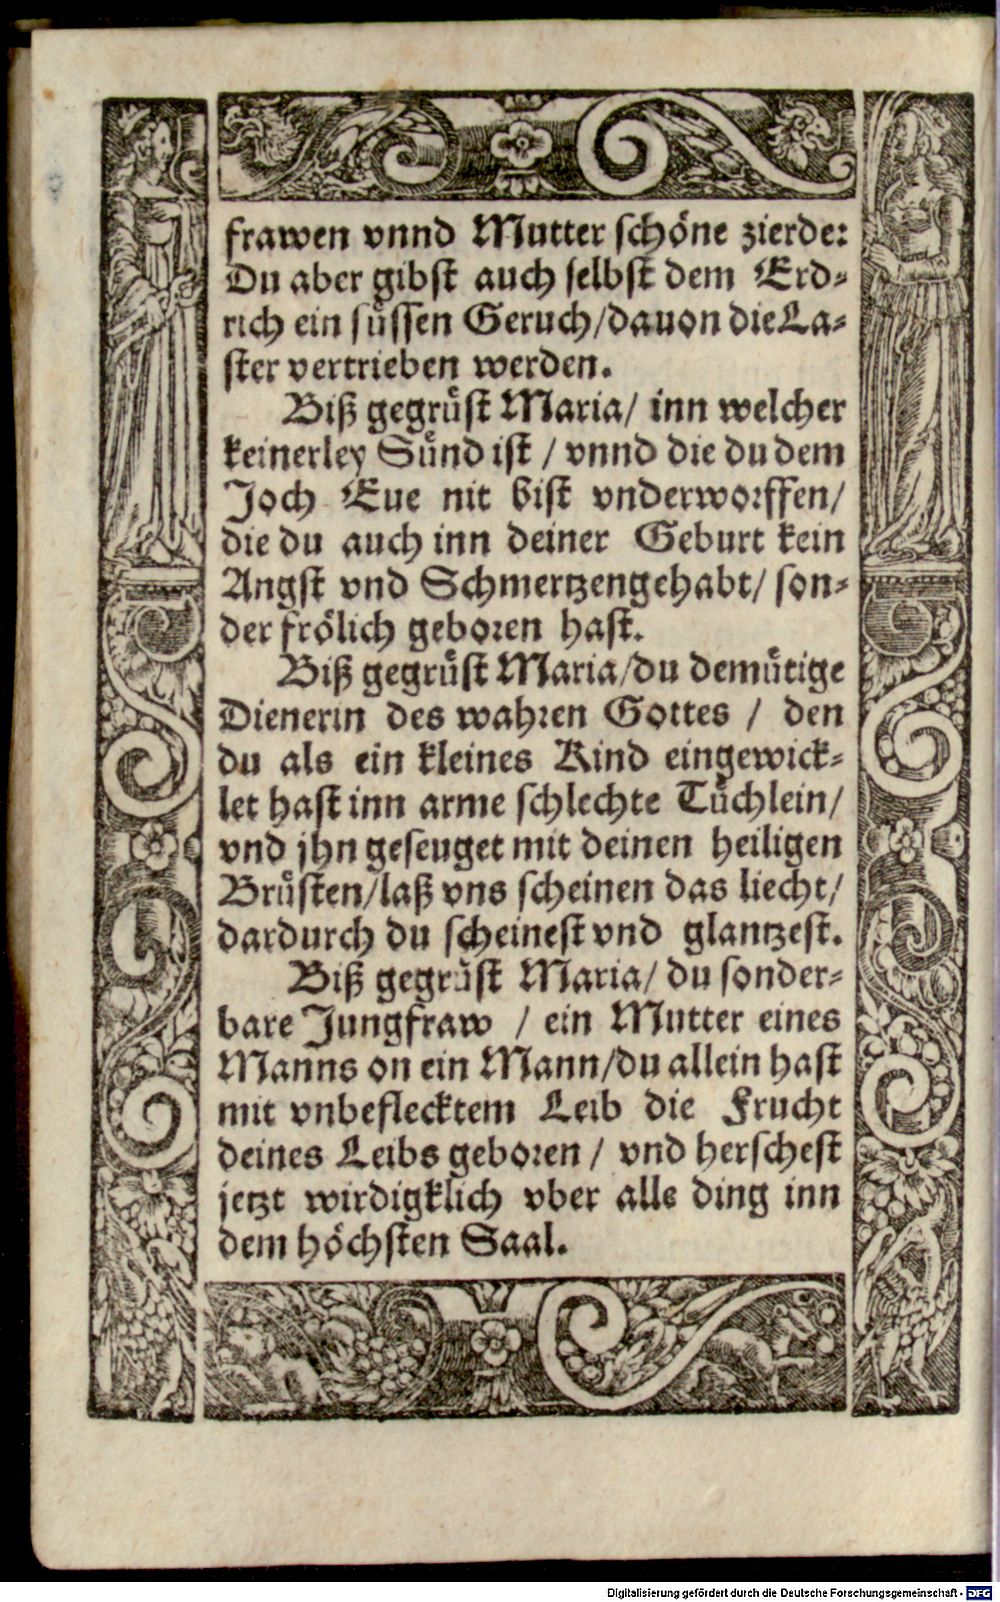 frawen vnnd Mutter schöne zierde:
Du aber gibst auch selbst dem Erd-
rich ein süssen Geruch/dauon die La-
ster vertrieben werden.
Biß gegrüst Maria/ inn welcher
keinerley Sünd ist / vnnd die du dem
Joch Eue nit bist vnderworffen/
die du auch inn deiner Geburt kein
Angst vnd Schmertzen gehabt/ son-
der frölich geboren hast.
Biß gegrüst Maria/du demütige
Dienerin des wahren Gottes / den
du als ein kleines Kind eingewick-
let hast inn arme schlechte Tüchlein/
vnd jhn geseuget mit deinen heiligen
Brüsten/laß vns scheinen das liecht/
dardurch du scheinest vnd glantzest.
Biß gegrüst Maria/ du sonder-
bare Jungfraw / ein Mutter eines
Manns on ein Mann/du allein hast
mit vnbeflecktem Leib die Frucht
deines Leibs geboren / vnd herschest
jetzt wirdigklich vber alle ding inn
dem höchsten Saal.
Digitalisierung gefördert durch die Deutsche Forschungsgemeinschaft - DFG